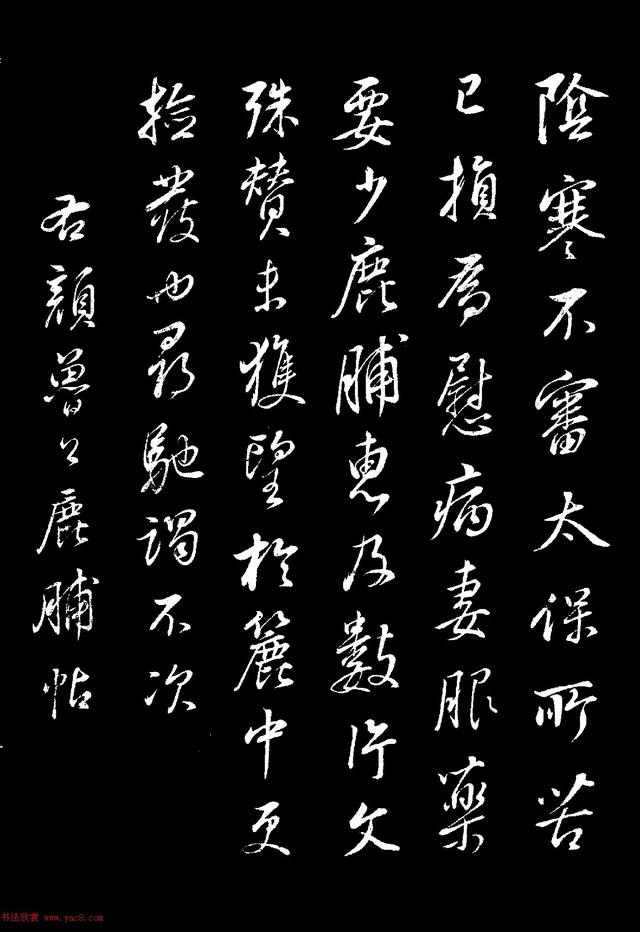 陰寒不審太保所苦
已損為慰病妻服藥
要少鹿脯惠及數片文
殊贊未獲望於簏中更
撿發也尋馳謁不次
右顏魯公鹿脯帖
书法欣赏 www.yac8.com